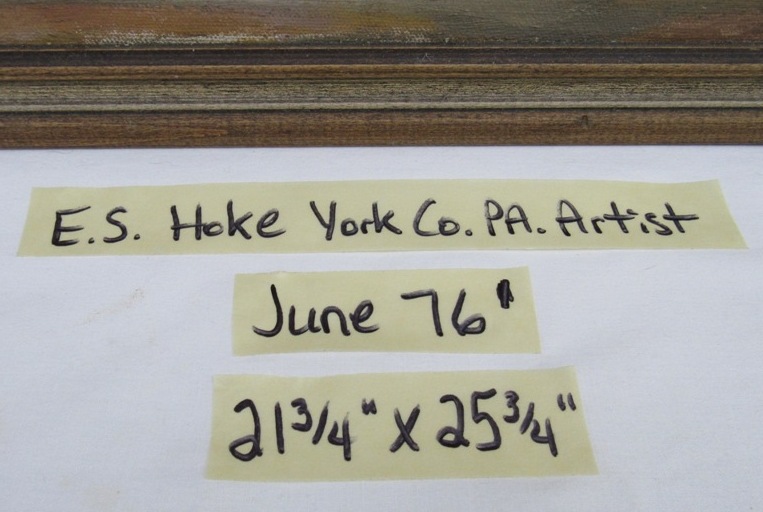 E.S. Hoke York Co. PA. Artist
June 76'
21 3/4" x 25 3/4"